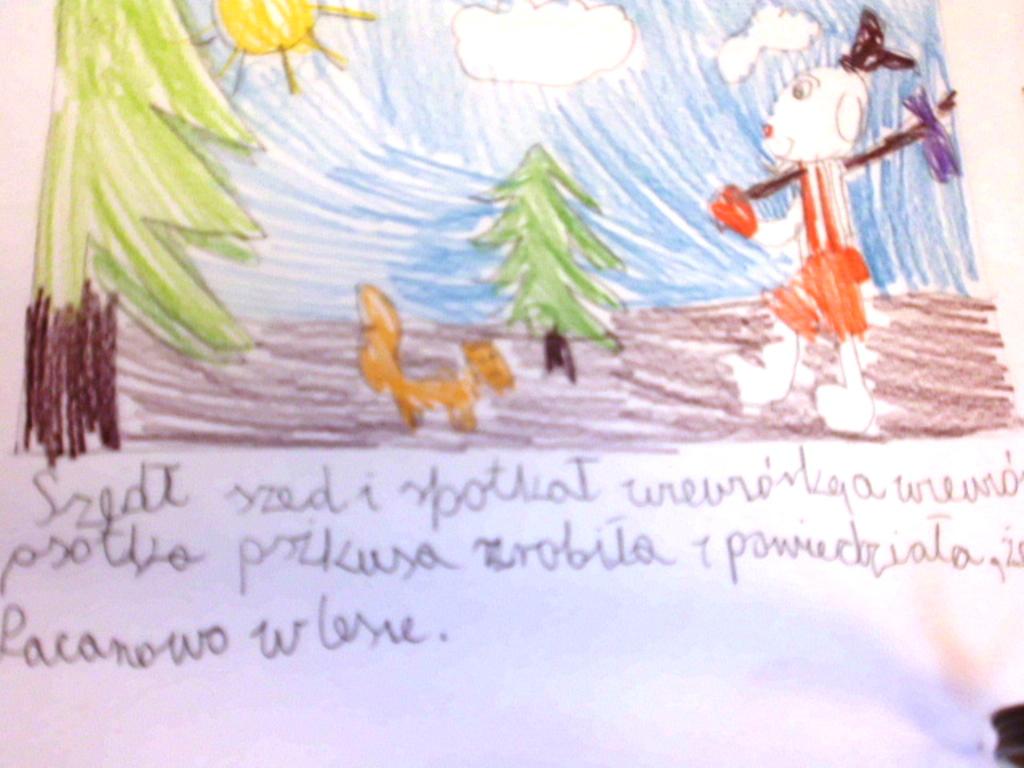 Szedł szed i spotkał wrewrórkę a wrewró
psotka psikusa zrobiła i powiedziała, że
Pacanowo w lesie.